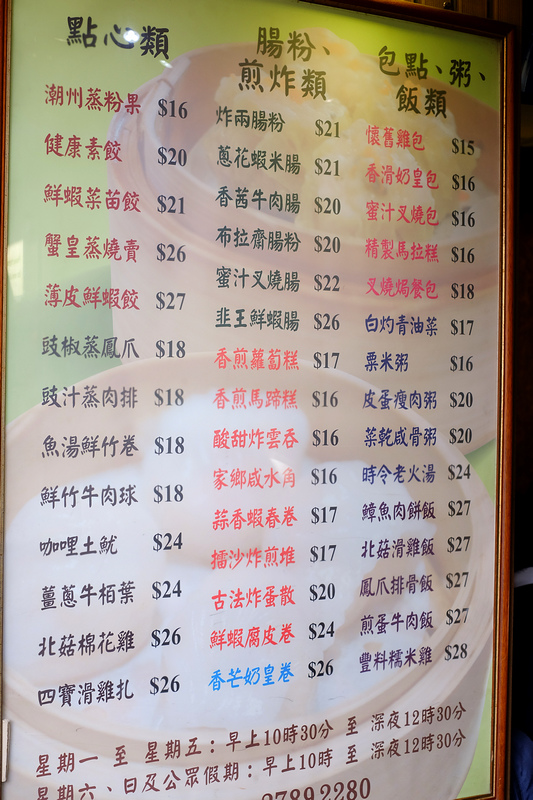 點心類
潮州蒸粉果 $16
健康素餃 $20
鮮蝦菜苗餃 $21
蟹皇蒸燒賣 $26
薄皮鮮蝦餃 $27
豉椒蒸鳳爪 $18
豉汁蒸肉排 $18
魚湯鮮竹卷 $18
鮮竹牛肉球 $18
咖哩土魷 $24
薑蔥牛栢葉 $24
北菇棉花雞 $26
四寶滑雞扎 $26
腸粉、
煎炸類
炸兩腸粉 $21
蔥花蝦米腸 $21
香茜牛肉腸 $20
布拉齋腸粉 $20
蜜汁叉燒腸 $22
韭王鮮蝦腸 $26
香煎蘿蔔糕 $17
香煎馬蹄糕 $16
酸甜炸雲吞 $16
家鄉咸水角 $16
蒜香蝦春卷 $17
擂沙炸煎堆 $17
古法炸蛋散 $20
鮮蝦腐皮卷 $24
香芒奶皇卷 $26
包點、粥、
飯類
懷舊雞包 $15
香滑奶皇包 $16
蜜汁叉燒包 $16
精製馬拉糕 $16
叉燒焗餐包 $18
白灼青油菜 $17
粟米粥 $16
皮蛋瘦肉粥 $20
菜乾咸骨粥 $20
時令老火湯 $24
鱆魚肉餅飯 $27
北菇滑雞飯 $27
鳳爪排骨飯 $27
煎蛋牛肉飯 $27
豐料糯米雞 $28
星期一 至 星期五：早上10時30分 至 深夜12時30分
星期六、日及公眾假期：早上10時 至 深夜12時30分
27892280